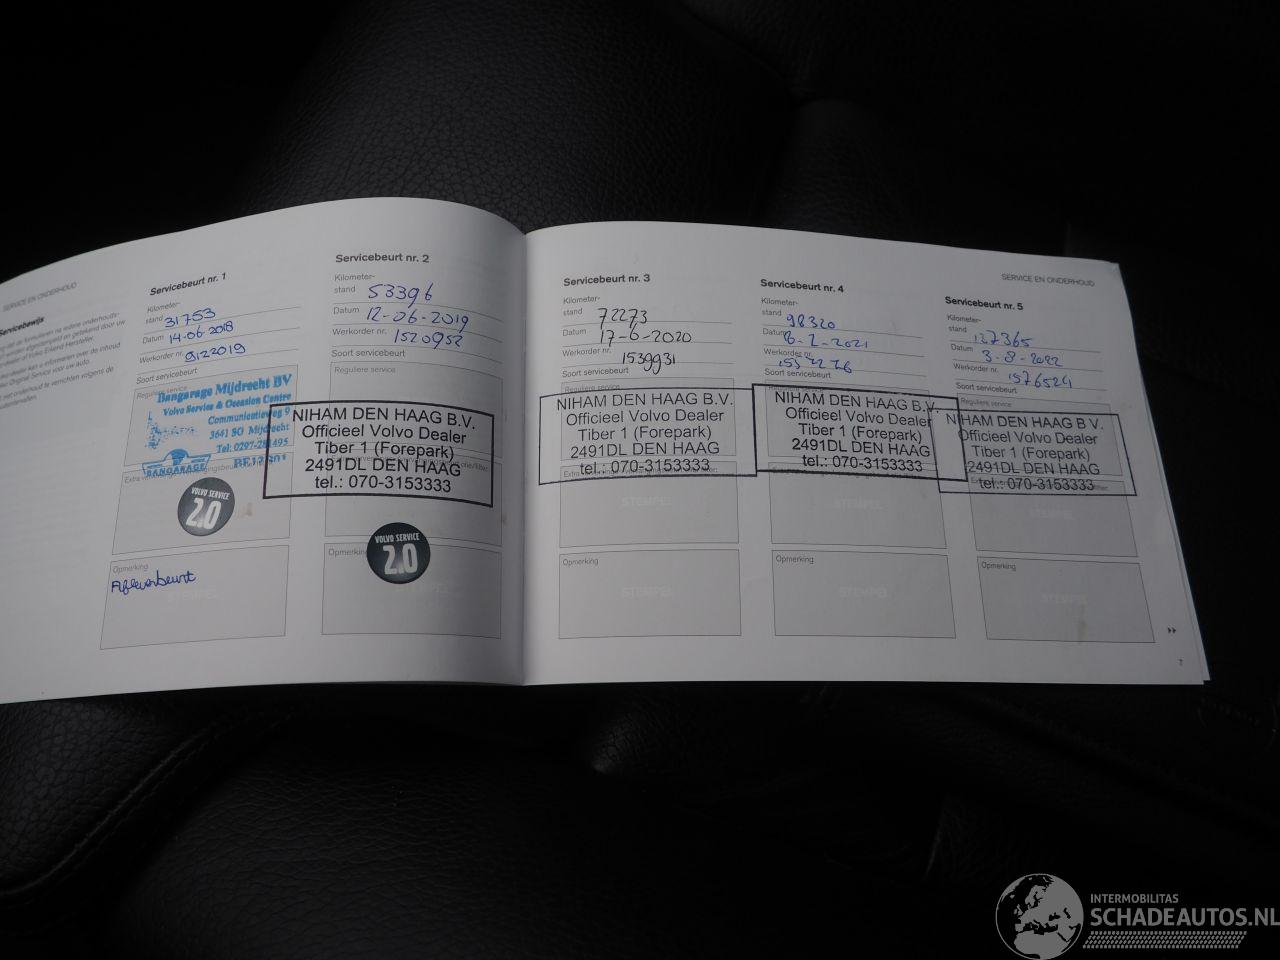 SERVICE EN ONDERHOUD
Servicebewijs
Servicebeurt nr. 1
Kilometer-
stand 31753
Datum 14-06-2018
Werkorder nr. 9122019
Soort servicebeurt
Reguliere service
Bangarage Mijdrecht BV
Volvo Service & Occasion Centre
Communicatieweg 9
3641 SG Mijdrecht
Tel: 0297-281495
BANGARAGE
VOLVO SERVICE
2.0
Opmerking
Afleverbeurt
STEMPEL
Servicebeurt nr. 2
Kilometer-
stand 53396
Datum 12-06-2019
Werkorder nr. 1520952
Soort servicebeurt
Reguliere service
NIHAM DEN HAAG B.V.
Officieel Volvo Dealer
Tiber 1 (Forepark)
2491DL DEN HAAG
tel.: 070-3153333
Opmerking
VOLVO SERVICE
2.0
Servicebeurt nr. 3
Kilometer-
stand 72273
Datum 17-6-2020
Werkorder nr. 1539931
Soort servicebeurt
Reguliere service
NIHAM DEN HAAG B.V.
Officieel Volvo Dealer
Tiber 1 (Forepark)
2491DL DEN HAAG
tel.: 070-3153333
STEMPEL
Opmerking
STEMPEL
Servicebeurt nr. 4
Kilometer-
stand 98320
Datum 8-2-2021
Werkorder nr.
Soort servicebeurt
NIHAM DEN HAAG B.V.
Officieel Volvo Dealer
Tiber 1 (Forepark)
2491DL DEN HAAG
tel.: 070-3153333
STEMPEL
Opmerking
STEMPEL
SERVICE EN ONDERHOUD
Servicebeurt nr. 5
Kilometer-
stand 127365
Datum 3-8-2022
Werkorder nr. 1576524
Soort servicebeurt
Reguliere service
NIHAM DEN HAAG B.V.
Officieel Volvo Dealer
Tiber 1 (Forepark)
2491DL DEN HAAG
tel.: 070-3153333
STEMPEL
Opmerking
STEMPEL
7
INTERMOBILITAS
SCHADEAUTOS.NL